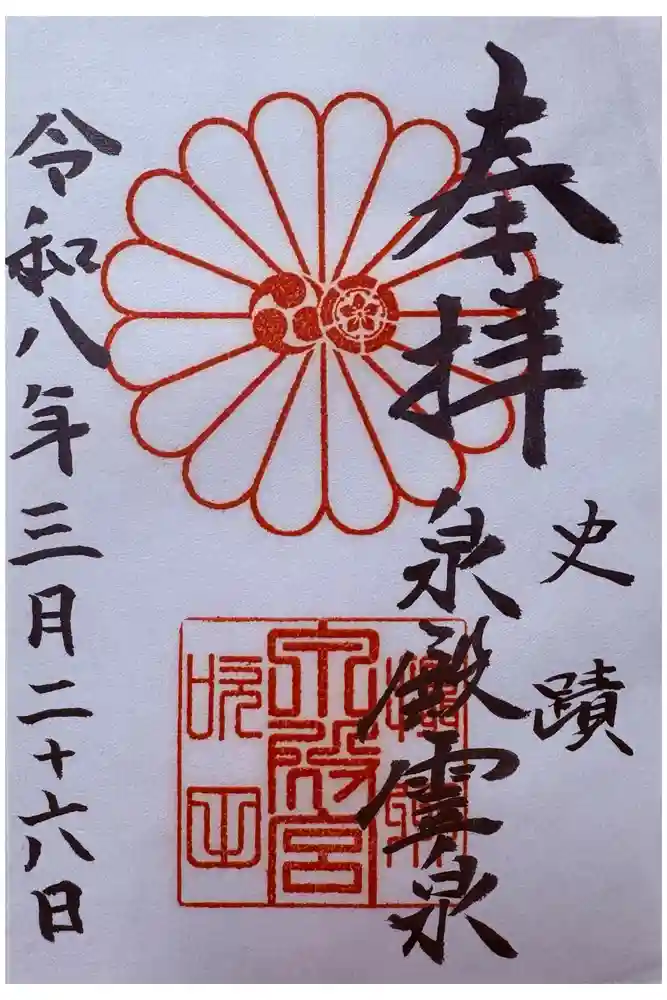 奉拝
史蹟
泉殿霊泉
泉殿宮
令和八年三月二十六日